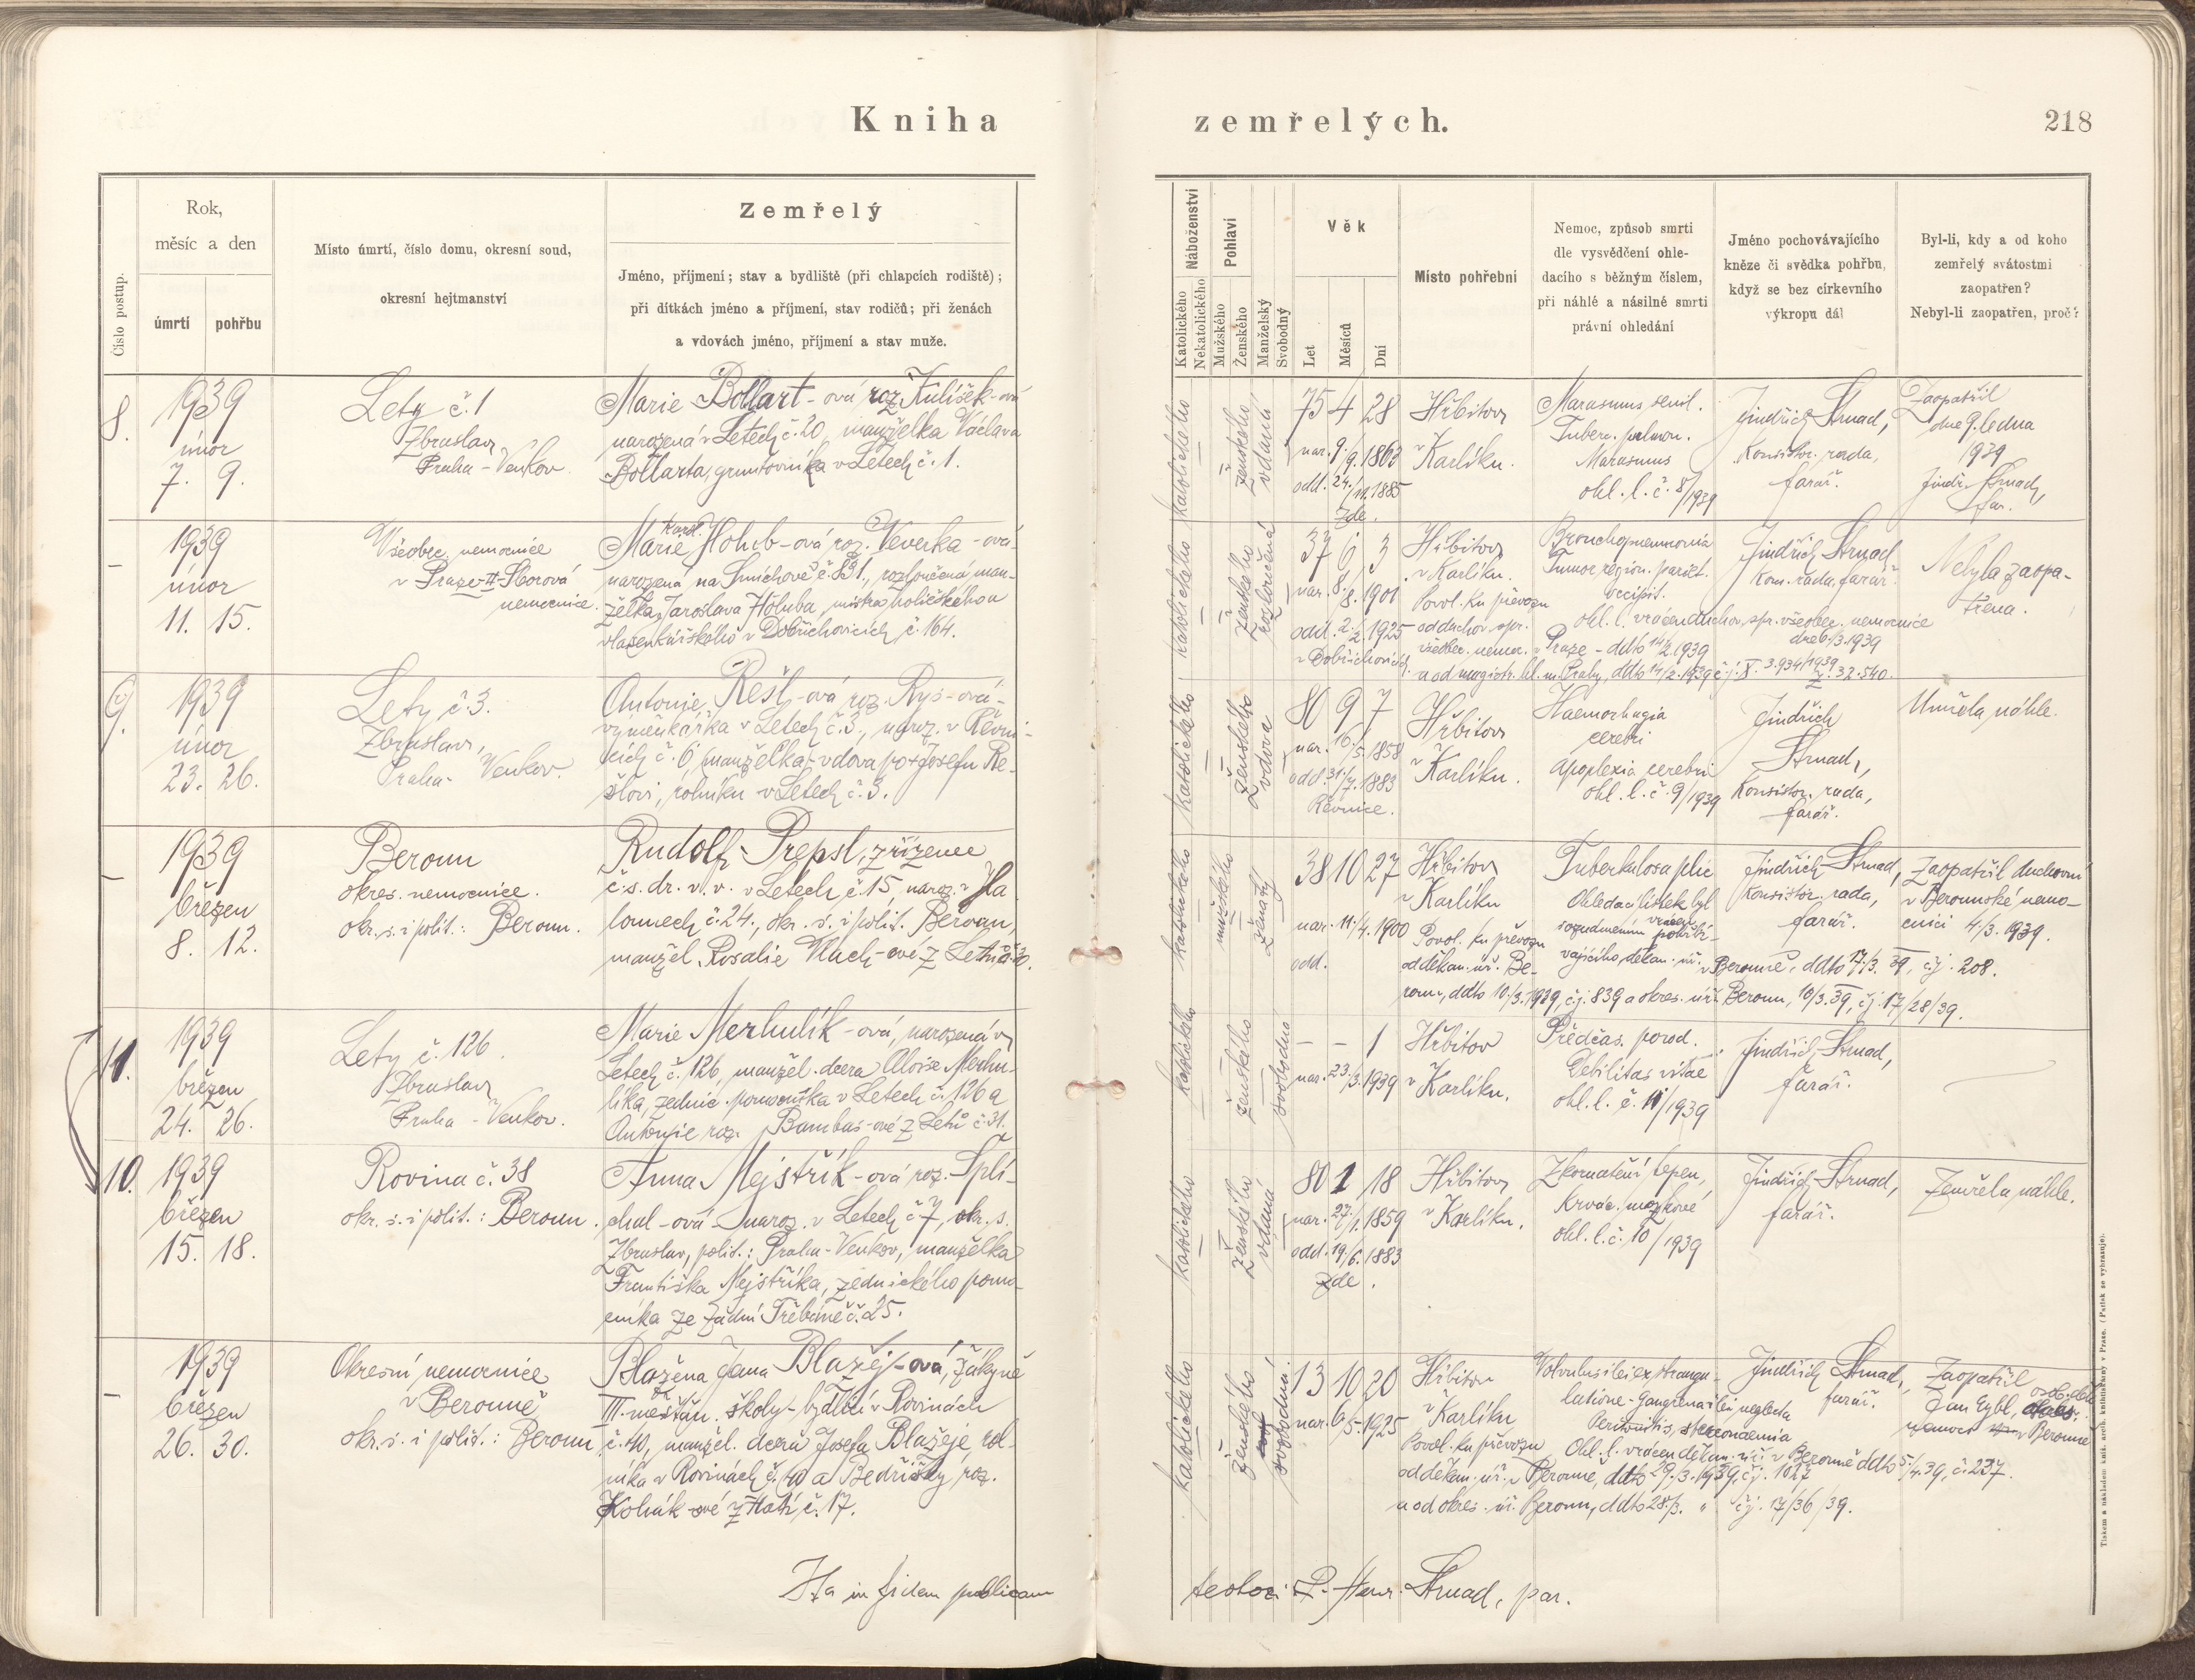 Kniha
zemřelých.
218
Číslo postup.
Rok,
měsíc a den
úmrtí
pohřbu
Místo úmrtí, číslo domu, okresní soud,
okresní hejtmanství
Zemřelý
Jméno, příjmení; stav a bydliště (při chlapcích rodiště);
při dítkách jméno a příjmení, stav rodičů; při ženách
a vdovách jméno, příjmení a stav muže.
Náboženství
Katolického
Nekatolického
Pohlaví
Mužského
Ženského
Manželský
Svobodný
Věk
Let
Měsíců
Dní
Místo pohřební
Nemoc, způsob smrti
dle vysvědčení ohle-
dacího s běžným číslem,
při náhlé a násilné smrti
právní ohledání
Jméno pochovávajícího
kněze či svědka pohřbu,
když se bez církevního
výkropu dál
Byl-li, kdy a od koho
zemřelý svátostmi
zaopatřen?
Nebyl-li zaopatřen, proč?
8.
1939
únor
7. 9.
Lety č. 1
Zbraslav
Praha - Venkov
Marie Bollart-ová roz. Kulíšek-ová
narozená v Letech č. 20, manželka Václava
Bollarta, gruntovníka v Letech č. 1.
katolického
ženského
vdaná
75 4 28
nar. 9./9. 1863
odd. 24./11. 1885
Zde.
Hřbitov
v Karlíku.
Marasmus senil.
Tuberc. pulmon.
Marasmus
ohl. l. č. 8/1939
Jindřich Strnad,
Konsistor. rada,
farář.
Zaopatřil
dne 9. ledna
1939
Jindř. Strnad,
far.
–
1939
únor
11. 15.
Všeobec. nemocnice
v Praze-II-Sborová
nemocnice.
Karol.
Marie Holub-ová roz. Veverka-ová
narozená na Smíchově č. 831., rozloučená man-
želka Jaroslava Holuba, mistra holičského a
vlasenkářského v Dobřichovicích č. 164.
katolického
ženského
rozloučená
37 6 3
nar. 8./8. 1901
odd. 2./2. 1925
v Dobřichovicích.
Hřbitov
v Karlíku.
Povol. ku převozu
od duchov. spr.
všeobec. nemoc. v Praze - ddto 14/2. 1939
a od magistr. hl. m. Prahy, ddto 14/2. 1939 č. j. X. 3.934/1939
Z. 32.540.
Bronchopneumonia
Tumor region. pariet.
occipit.
ohl. l. vrácen duchov. spr. všeobec. nemocnice
dne 6./3. 1939
Jindřich Strnad
Kons. rada, farář.
Nebyla zaopa-
třena.
9.
1939
únor
23. 26.
Lety č. 3.
Zbraslav,
Praha - Venkov.
Antonie Rešl-ová roz. Rys-ová-
výměnkářka v Letech č. 3., naroz. v Řevni-
cích č. 6, manželka-vdova po Josefu Re-
šlovi, rolníku v Letech č. 3.
katolického
ženského
vdova
80 9 7
nar. 16./5. 1858
odd. 31./7. 1883
Řevnice.
Hřbitov
v Karlíku.
Haemorhagia
cerebri
apoplexia cerebri
ohl. l. č. 9/1939
Jindřich
Strnad,
Konsistor. rada,
farář.
Umřela náhle.
–
1939
březen
8. 12.
Beroun
okres. nemocnice.
okr. s. i polit.: Beroun.
Rudolf Prepsl, zřízenec
č. s. dr. v. v. v Letech č. 15, naroz. v Ha-
lounech č. 24., okr. s. i polit. Beroun,
manžel Rosalie Vlach-ové z Letů č. 30.
katolického
mužského
ženatý
38 10 27
nar. 11./4. 1900
odd.
Hřbitov
v Karlíku
Povol. ku převozu
od děkan. úř. Be-
roun, ddto 10./3. 1939, čj. 839 a okres. úř. Beroun, 10/3. 39, čj. 17/28/39.
Tuberkulosa plic
Ohledací lístek byl
vrácen
vajícího, děkan. úř. v Berouně, ddto 17./3. 39, čj. 208.
Jindřich Strnad,
Konsistor. rada,
farář.
Zaopatřil duchovní
v Berounské nemo-
cnici 4/3. 1939.
11.
1939
březen
24. 26.
Lety č. 126.
Zbraslav
Praha - Venkov.
Marie Merhulík-ová, narozená v
Letech č. 126, manžel. dcera Aloise Merhu-
líka, zednic. pomocníka v Letech č. 126 a
Antonie roz. Bambas-ové z Letů č. 31.
katolického
ženského
svobodná
– – 1
nar. 23./3. 1939
Hřbitov
v Karlíku.
Předčas. porod.
Debilitas vitae
ohl. l. č. 11/1939
Jindřich Strnad,
farář.
10.
1939
březen
15. 18.
Rovina č. 38
okr. s. i polit.: Beroun.
Anna Mejstřík-ová roz. Šplí-
chal-ová - naroz. v Letech č. 7, okr. s.
Zbraslav, polit.: Praha-Venkov, manželka
Františka Mejstříka, zednického pomo-
cníka ze Zadní Třebáně č. 25.
katolického
ženského
vdaná
80 1 18
nar. 27./1. 1859
odd. 19./6. 1883
Zde.
Hřbitov
v Karlíku.
Zkornatění tepen,
Krvác. mozkové
ohl. l. č. 10/1939
Jindřich Strnad,
farář.
Zemřela náhle.
–
1939
březen
26. 30.
Okresní nemocnice
v Berouně
okr. s. i polit.: Beroun
Blažena Jana Blažej-ová, žákyně
III. měšťan. školy - bydlící v Rovinách
č. 40, manžel. dcera Josefa Blažeje, rol-
níka v Rovinách č. 40 a Bedřišky roz.
Kohák-ové z Hatí č. 17.
katolického
ženského
svobodná
13 10 20
nar. 6./5. 1925
Hřbitov
v Karlíku
Povol. ku převozu
od děkan. úř. v Berouně, ddto 29. 3. 1939, čj. 1027
a od okres. úř. Beroun, ddto 28./3. " čj. 17/36/39.
Volvulus ilei ex strangu-
latione - Gangrena ilei neglecta
Peritonitis, stercoraemia
Ohl. l. vrácen děkan. úř. v Berouně ddto 5./4. 39, č. 237.
Jindřich Strnad,
farář.
Zaopatřil
Jan Eybl,
nemoc. v Berouně
Ita in fidem publicam
testor: P. Henr. Strnad, par.
Tiskem a nákladem kníž. arcib. knihtiskárny v Praze. (Patisk se vyhrazuje).